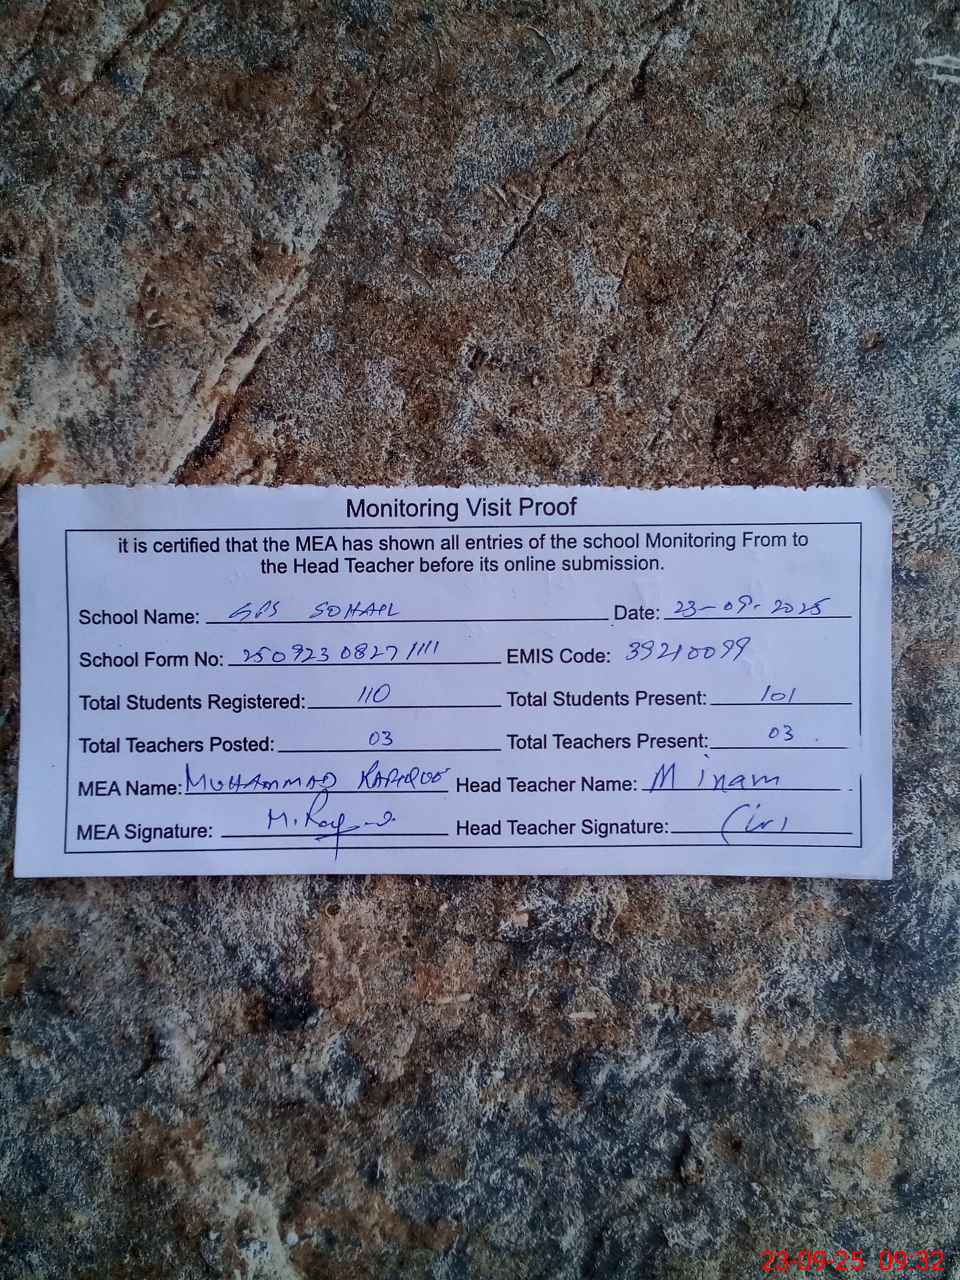 Monitoring Visit Proof
it is certified that the MEA has shown all entries of the school Monitoring From to
the Head Teacher before its online submission.
School Name: GPS SOHAIL Date: 23-09-2025
School Form No: 250923 0827 1111 EMIS Code: 39210099
Total Students Registered: 110 Total Students Present: 101
Total Teachers Posted: 03 Total Teachers Present: 03
MEA Name: MUHAMMAD Head Teacher Name: M inam
MEA Signature: Head Teacher Signature:
23-09-25 09:32